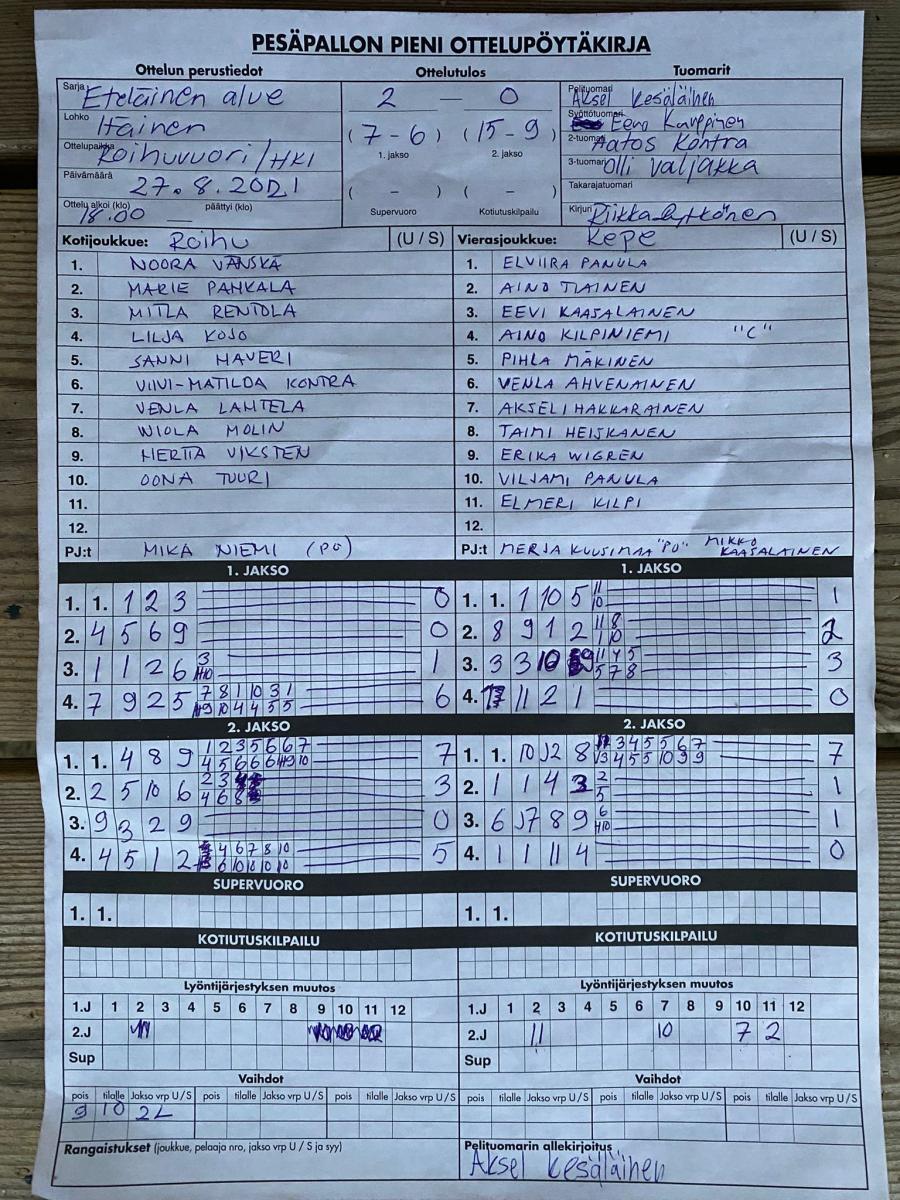 PESÄPALLON PIENI OTTELUPÖYTÄKIRJA
Ottelun perustiedot Ottelutulos Tuomarit
Sarja Eteläinen alue
Lohko Itäinen
Ottelupaikka Roihuvuori/HKI
Päivämäärä 27.8.2021
Ottelu alkoi (klo) 18.00 — päättyi (klo)
2 — 0
(7-6) (15-9)
1. jakso 2. jakso
( - ) ( - )
Supervuoro Kotiutuskilpailu
Pelituomari Aksel Kesäläinen
Syöttötuomari Eero Karppinen
2-tuomari Aatos Kontra
3-tuomari Olli Valjakka
Takarajatuomari
Kirjuri Riikka
Kotijoukkue: Roihu (U / S) Vierasjoukkue: Kepe (U / S)
1. NOORA VÄNSKÄ 1. ELVIIRA PANULA
2. MARIE PAHKALA 2. AINO TIAINEN
3. RENTOLA 3. EEVI KAASALAINEN
4. LILJA KOJO 4. AINO KILPINIEMI "C"
5. SANNI HAVERI 5. PIHLA MÄKINEN
6. VIIVI-MATILDA KONTRA 6. VENLA AHVENAINEN
7. VENLA LAHTELA 7. AKSELI HAKKARAINEN
8. WIOLA MOLIN 8. TAIMI HEISKANEN
9. HERTTA VIKSTEN 9. ERIKA WIGREN
10. OONA TUURI 10. VILJAMI PANULA
11. 11. ELMERI KILPI
12. 12.
PJ:t MIKA NIEMI (PÖ) PJ:t MERJA KUUSIMAA "PÖ" MIKKO KAASALAINEN
1. JAKSO 1. JAKSO
1. 1. 1 2 3 0 1. 1. 1 10 5 11 10 1
2. 4 5 6 9 0 2. 8 9 1 2 11 8 1 10 2
3. 1 1 2 6 3 H10 1 3. 3 3 10 9 11 4 5 5 7 8 3
4. 7 9 2 5 7 8 1 10 3 1 H9 10 4 4 5 5 6 4. 11 2 1 0
2. JAKSO 2. JAKSO
1. 1. 4 8 9 1 2 3 5 6 6 7 4 5 6 6 6 H9 10 7 1. 1. 10 J2 8 3 4 5 5 6 7 4 5 5 10 9 9 7
2. 2 5 10 6 2 3 4 6 8 3 2. 1 1 4 3 2 5 1
3. 9 3 2 9 0 3. 6 J7 8 9 6 H10 1
4. 4 5 1 2 4 6 7 8 10 6 10 10 10 10 5 4. 1 1 11 4 0
SUPERVUORO SUPERVUORO
1. 1. 1. 1.
KOTIUTUSKILPAILU KOTIUTUSKILPAILU
Lyöntijärjestyksen muutos Lyöntijärjestyksen muutos
1.J 1 2 3 4 5 6 7 8 9 10 11 12 1.J 1 2 3 4 5 6 7 8 9 10 11 12
2.J 2.J 11 10 7 2
Sup Sup
Vaihdot Vaihdot
pois tilalle Jakso vrp U / S pois tilalle Jakso vrp U / S pois tilalle Jakso vrp U / S pois tilalle Jakso vrp U / S pois tilalle Jakso vrp U / S pois tilalle Jakso vrp U / S
9 10 2L
Rangaistukset (joukkue, pelaaja nro, jakso vrp U / S ja syy) Pelituomarin allekirjoitus
Aksel Kesäläinen